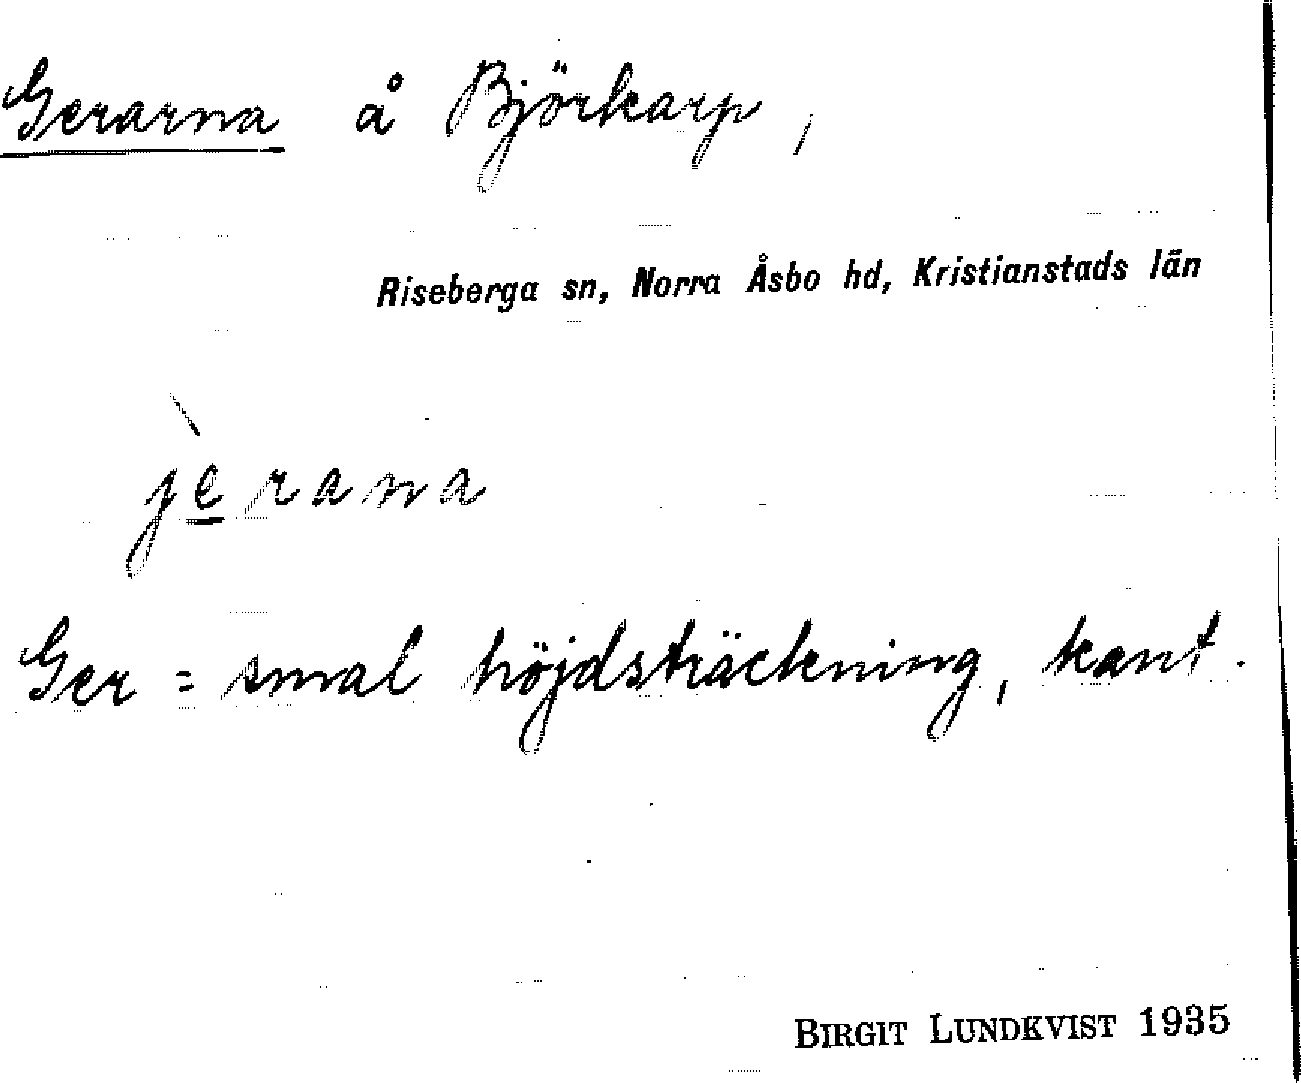 Gerarna å Björkarp,
Riseberga sn, Norra Åsbo hd, Kristianstads län
jè̱rana
Ger = smal höjdsträckning, kant.
BIRGIT LUNDKVIST 1935